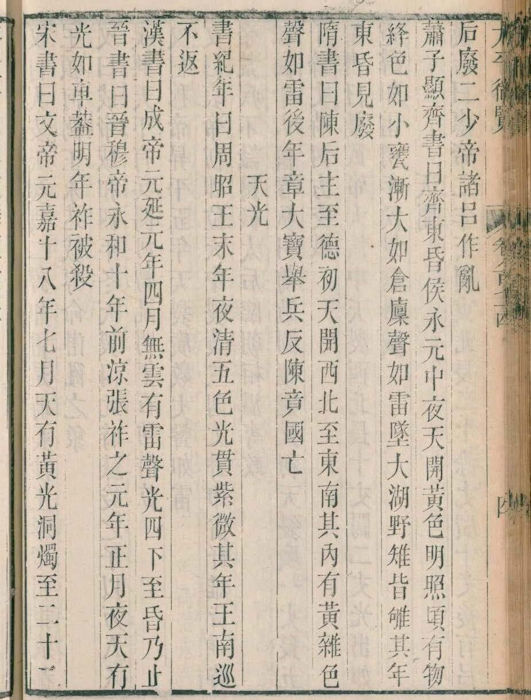 后廢二少帝諸呂作亂
蕭子顯齊書曰齊東昏侯永元中夜天開黃色明照頃有物
絳色如小甕漸大如倉廩聲如雷墜大湖野雉皆雊其年
東昏見廢
隋書曰陳后主至德初天開西北至東南其內有黃雜色
聲如雷後年章大寶舉兵反陳竟國亡
天光
書紀年曰周昭王末年夜清五色光貫紫微其年王南巡
不返
漢書曰成帝元延元年四月無雲有雷聲光四下至昏乃止
晉書曰晉穆帝永和十年前涼張祚之元年正月夜天有
光如車蓋明年祚被殺
宋書曰文帝元嘉十八年七月天有黃光洞燭至二十